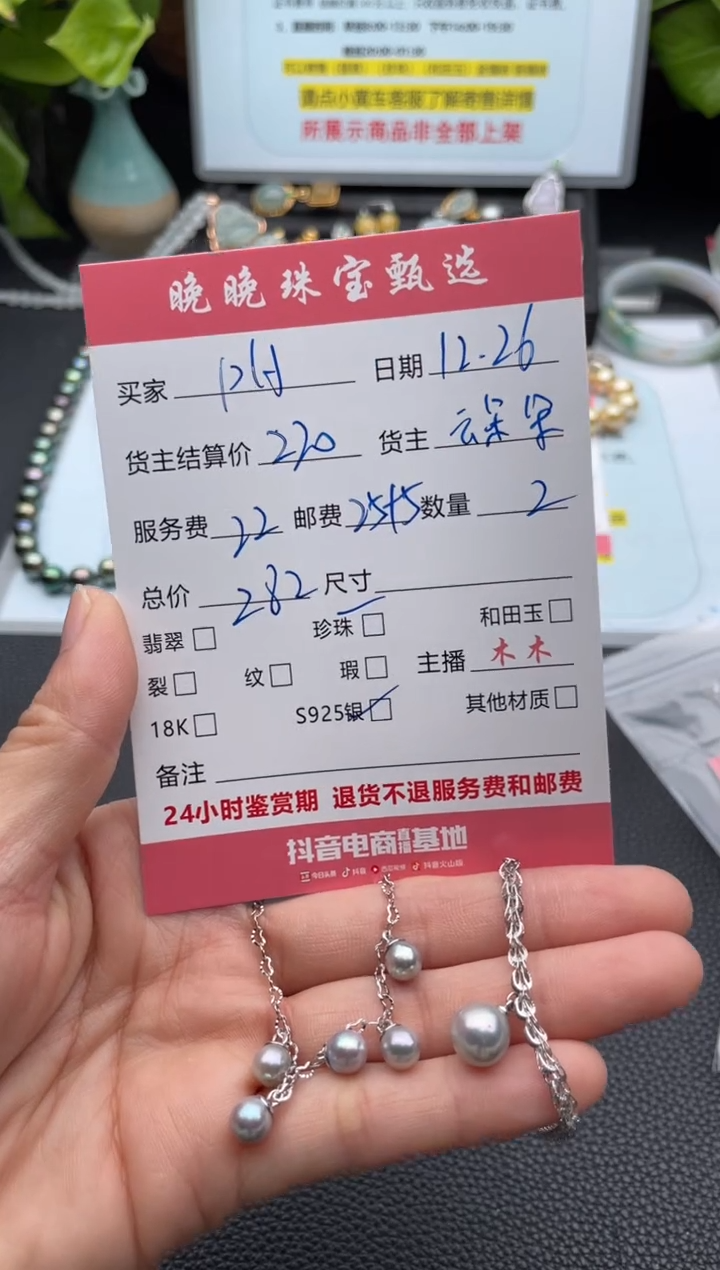 请点小黄车客服了解寄售详情
所展示商品非全部上架
晚晚珠宝甄选
买家 日期 12.26
货主结算价 230 货主 云朵朵
服务费 22 邮费 25+5 数量 2
总价 282 尺寸
翡翠 珍珠 和田玉
裂 纹 瑕 主播 木木
18K S925银 其他材质
备注
24小时鉴赏期 退货不退服务费和邮费
抖音电商直播基地
今日头条 抖音 西瓜视频 抖音火山版